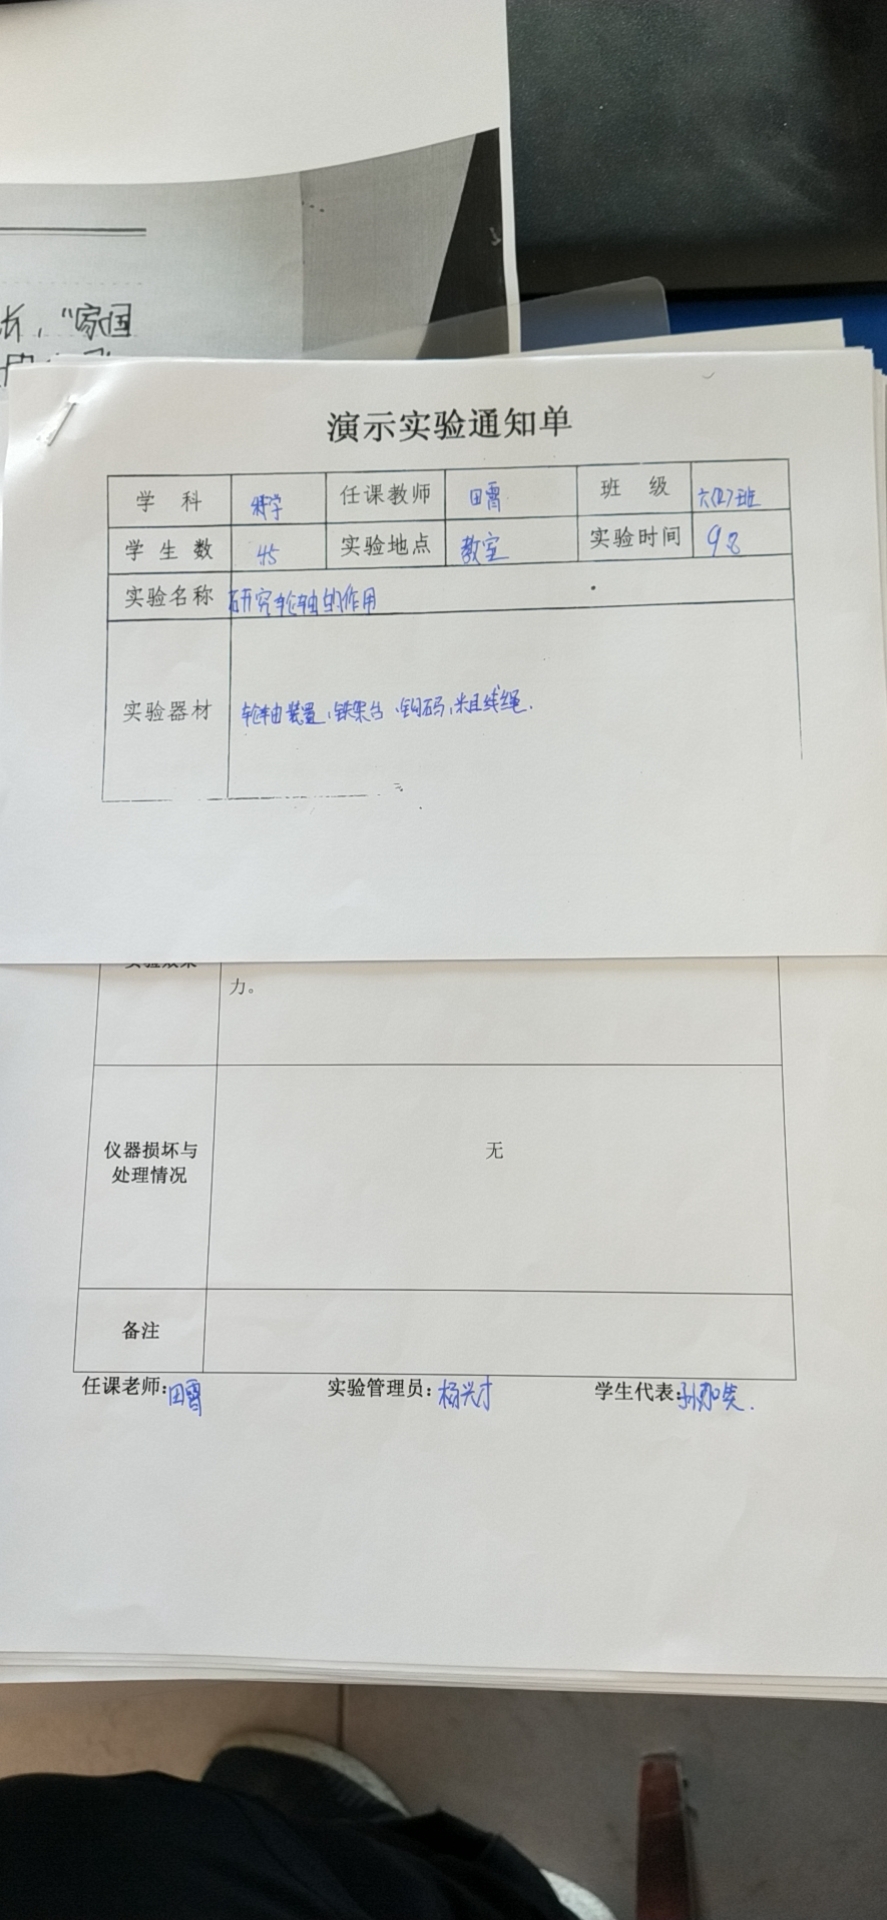 “家国
演示实验通知单
学 科 科学 任课教师 田霄 班 级 六(2)班
学 生 数 45 实验地点 教室 实验时间 9 8
实验名称 研究轮轴的作用
实验器材 轮轴装置、铁架台、钩码、粗线绳.
实验效果
力。
仪器损坏与
处理情况
无
备注
任课老师:田霄 实验管理员:杨兴才 学生代表: